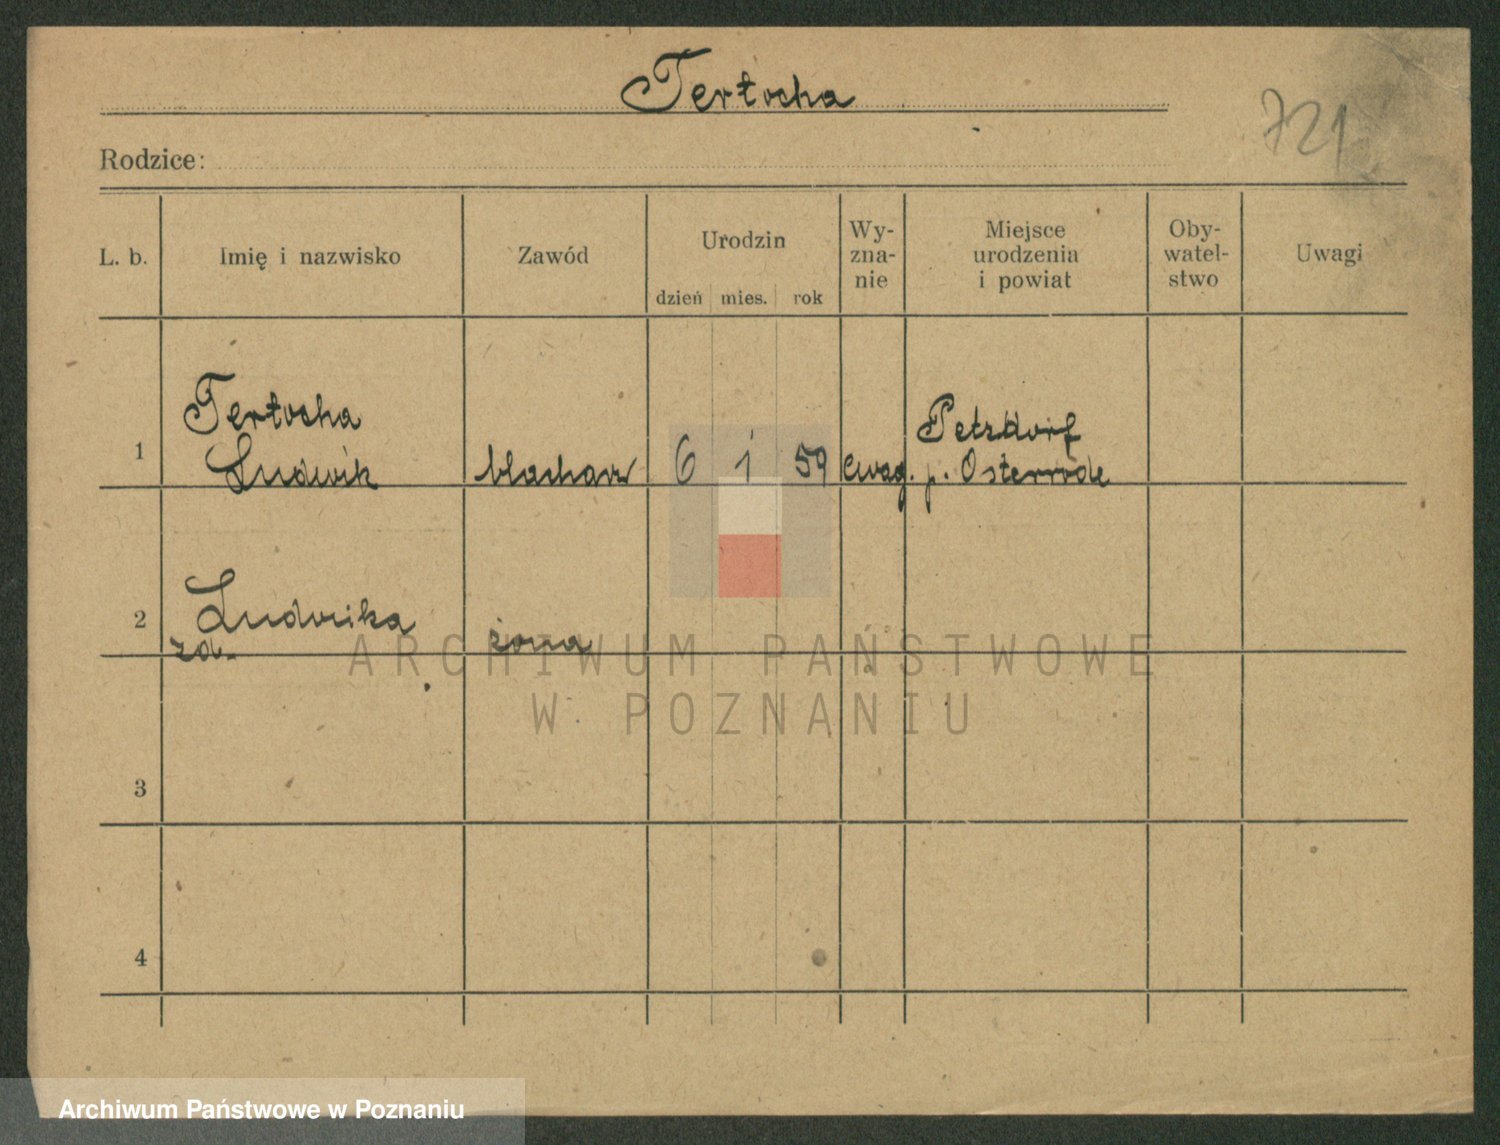 Tertocha
721
Rodzice:
L. b.
Imię i nazwisko
Zawód
Urodzin
dzień mies. rok
Wy-
zna-
nie
Miejsce
urodzenia
i powiat
Oby-
watel-
stwo
Uwagi
1
Tertocha
Ludwik
blacharz
6 1 59
ewag.
Petzdorf
p. Osterrode
2
Ludwika
zd.
żona
3
4
ARCHIWUM PAŃSTWOWE
W POZNANIU
Archiwum Państwowe w Poznaniu